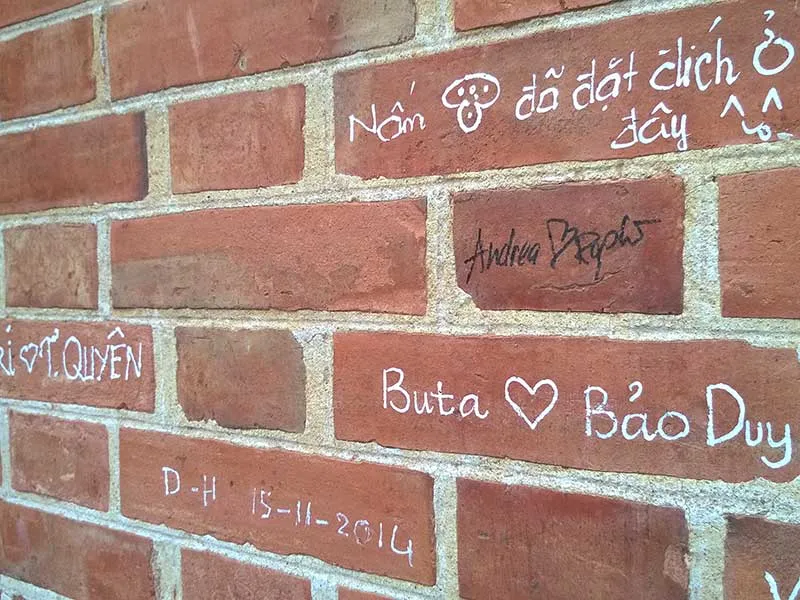 Nấm đã đặt đlích ở
đây ^ô^
Andrea
RI ♡ T. QUYÊN
Buta ♡ Bảo Duy
D-H 15-11-2014